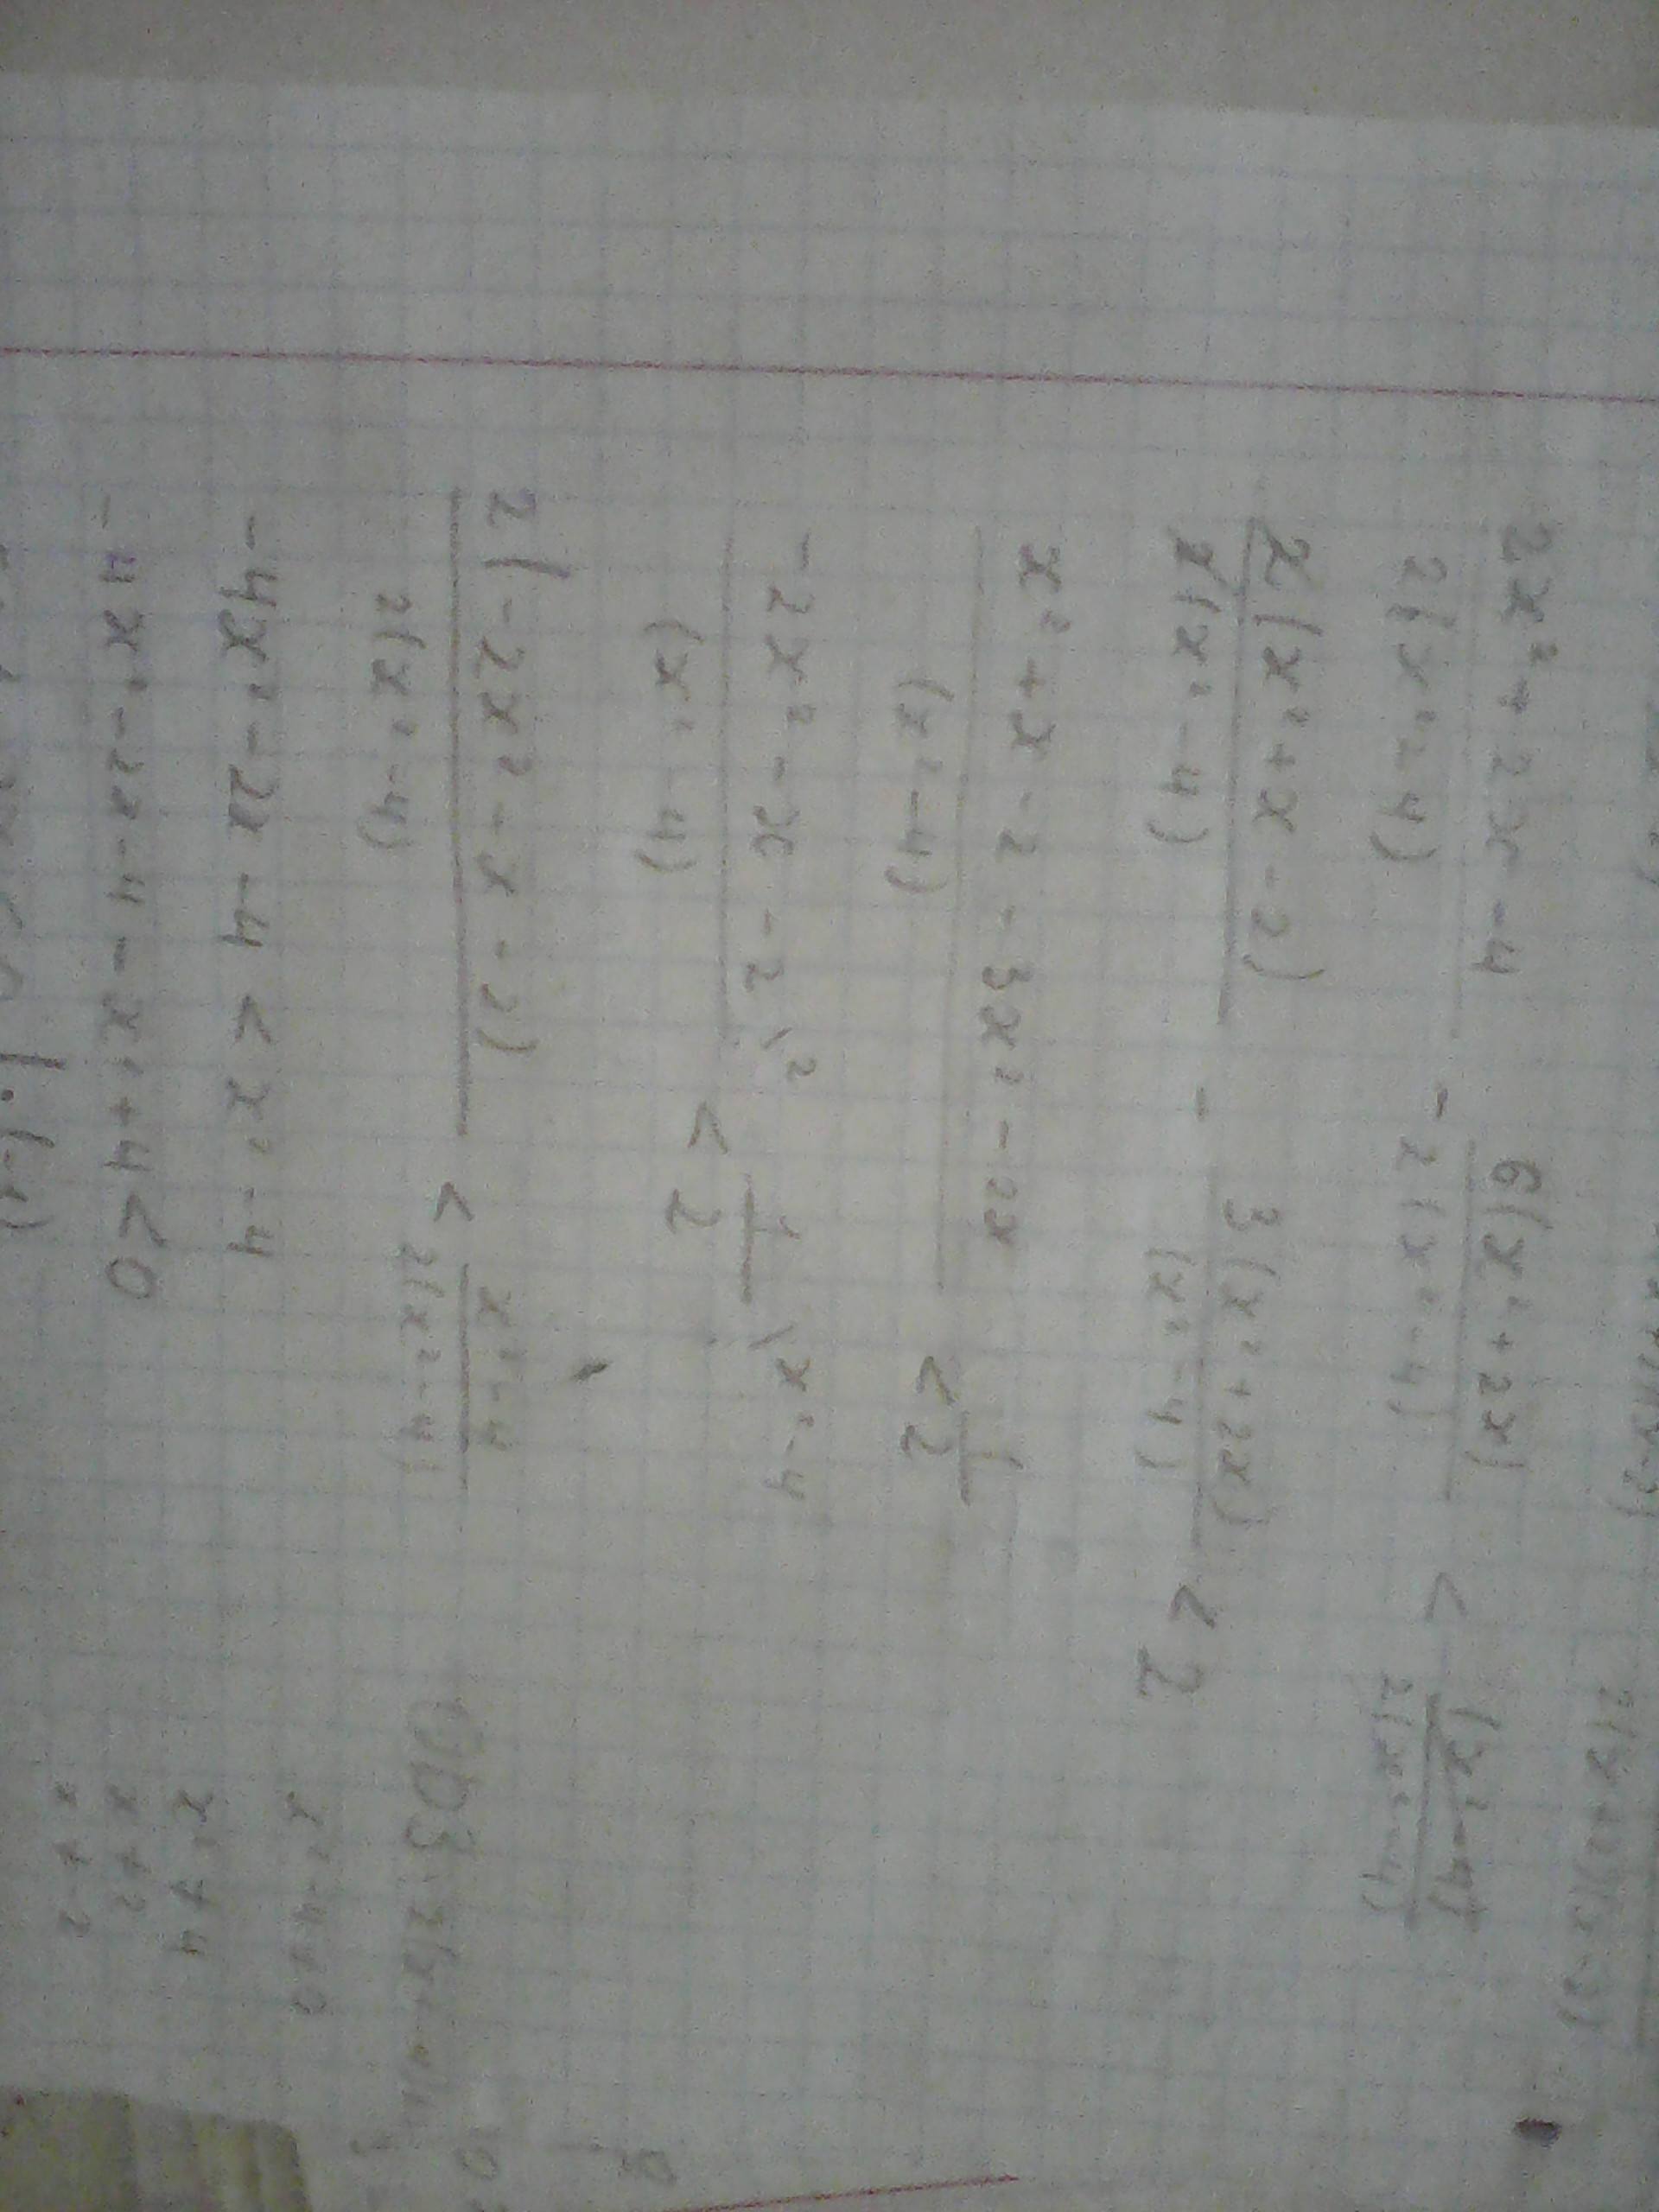 2x² + 2x - 4 / 2(x² - 4) - 6(x² + 2x) / 2(x² - 4) < (x² - 4) / 2(x² - 4)
2(x² + x - 2) / 2(x² - 4) - 3(x² + 2x) / (x² - 4) < 2
x² + x - 2 - 3x² - 2x / (x² - 4) < 1 / 2
- 2x² - x - 2 \ 2 / (x² - 4) < 1 / 2 \ x² - 4
2(- 2x² - x - 2) / 2(x² - 4) < x² - 4 / 2(x² - 4)
- 4x² - 2x - 4 < x² - 4
- 4x² - 2x - 4 - x² + 4 > 0
ОДЗ: 2(x² - 4)
x² - 4 ≠ 0
x² ≠ 4
x ≠ 2
x ≠ - 2